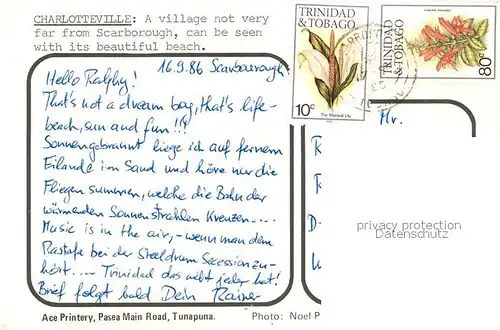 CHARLOTTEVILLE: A village not very
far from Scarborough, can be seen
with its beautiful beach.
TRINIDAD
& TOBAGO
10c
The Maraval Lily
TRINIDAD
& TOBAGO
80c
16.9.86 Scarborough
Hello Ralphy!
That's not a dream boy, that's life-
beach, sun and fun!!!
Sonnengebrannt liege ich auf fernem
Eilande im Sand und höre nur die
Fliegen summen, welche die Bahn der
wärmenden Sonnenstrahlen kreuzen....
Music is in the air, - wenn man dem
Rastafa bei der Steeldrum Secession zu-
hört.... Trinidad das nicht jeder hat!
Brief folgt bald Dein Rainer
Mr.
privacy protection
Datenschutz
Ace Printery, Pasea Main Road, Tunapuna. Photo: Noel P